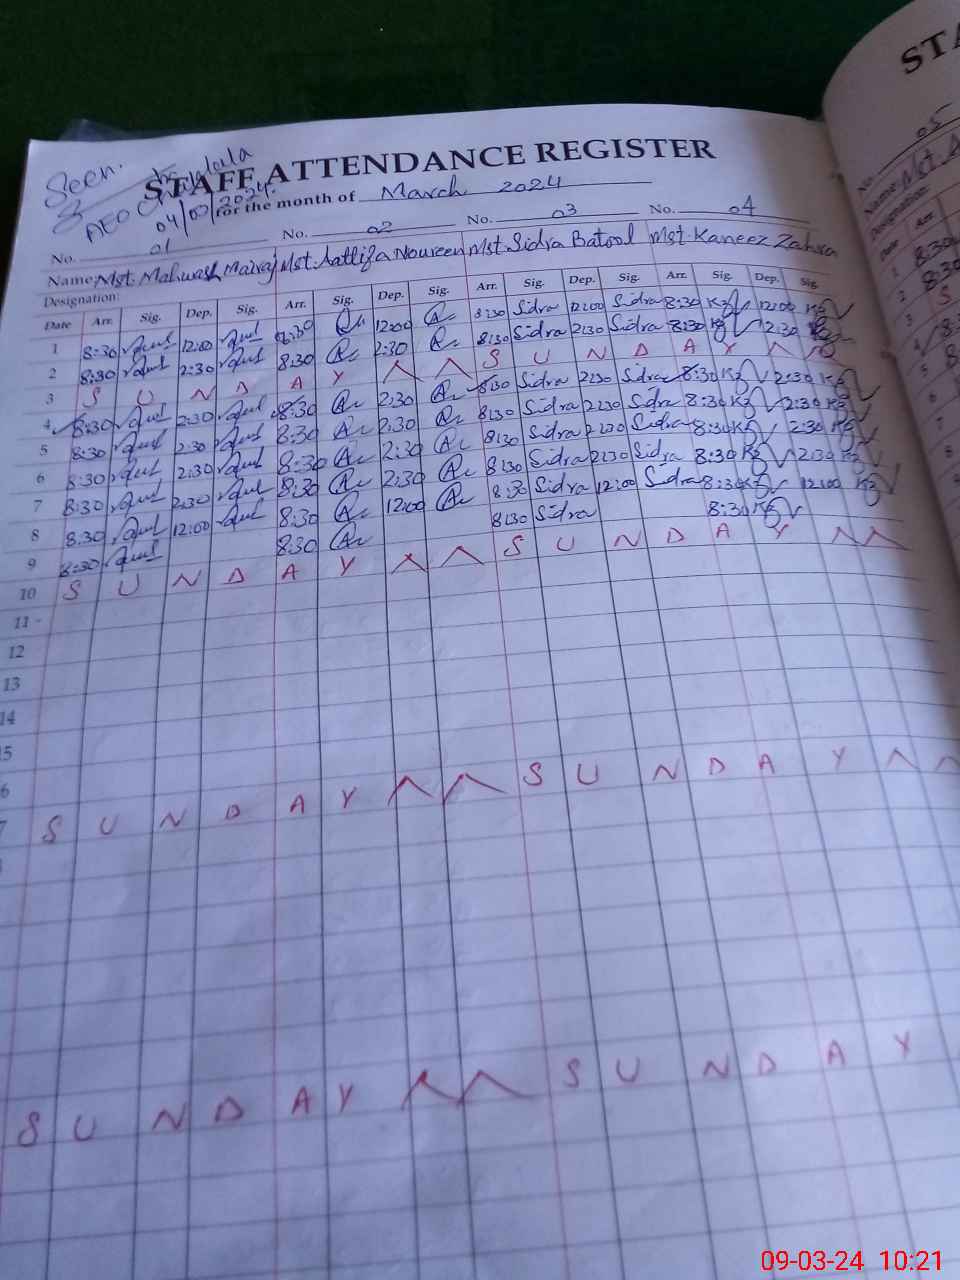 Seen.
AEO
04/03/2024.
STAFF ATTENDANCE REGISTER
for the month of March 2024
No. 01 No. 02 No. 03 No. 04
Name: Mst. Mahwash Mst. Noureen Mst. Sidra Batool Mst. Kaneez Zahra
Designation:
Date Arr. Sig. Dep. Sig. Arr. Sig. Dep. Sig. Arr. Sig. Dep. Sig. Arr. Sig. Dep. Sig.
1 8:30 12:00 8:30 12:00 8:30 Sidra 12:00 Sidra 8:30 12:00
2 8:30 2:30 8:30 2:30 8:30 Sidra 2:30 Sidra 8:30 2:30
3 S U N D A Y S U N D A Y
4 8:30 2:30 8:30 2:30 8:30 Sidra 2:30 Sidra 8:30 2:30
5 8:30 2:30 8:30 2:30 8:30 Sidra 2:30 Sidra 8:30 2:30
6 8:30 2:30 8:30 2:30 8:30 Sidra 2:30 Sidra 8:30 2:30
7 8:30 2:30 8:30 2:30 8:30 Sidra 2:30 Sidra 8:30 2:30
8 8:30 12:00 8:30 12:00 8:30 Sidra 12:00 Sidra 8:30 12:00
9 8:30 8:30 8:30 Sidra 8:30
10 S U N D A Y S U N D A Y
11
12
13
14
5
6
7 S U N D A Y S U N D A Y
S U N D A Y S U N D A Y
STA
No. 05
Name: Mst. A
Designation:
Date Arr.
1 8:30
2 8:30
3 S
4 8:3
5
6
7
8
09-03-24 10:21